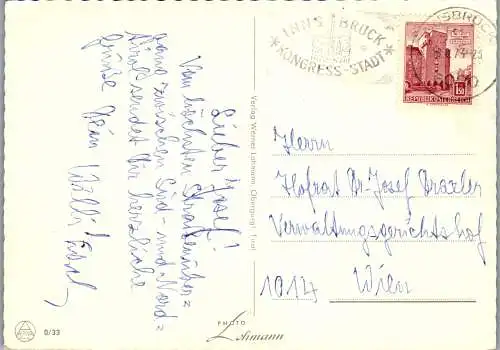 Lieber Josef!
Vom höchsten Straßenüber=
gang zwischen Süd- und Nord=
tirol sendet Dir herzliche
Grüße Dein Willi
INNSBRUCK
KONGRESS-STADT
REPUBLIK ÖSTERREICH
1.50
Herrn
Hofrat Dr. Josef Draxler
Verwaltungsgerichtshof
1014 Wien
Verlag Werner Lohmann, Obergurgl, Tirol
PHOTO
Lohmann
D/33